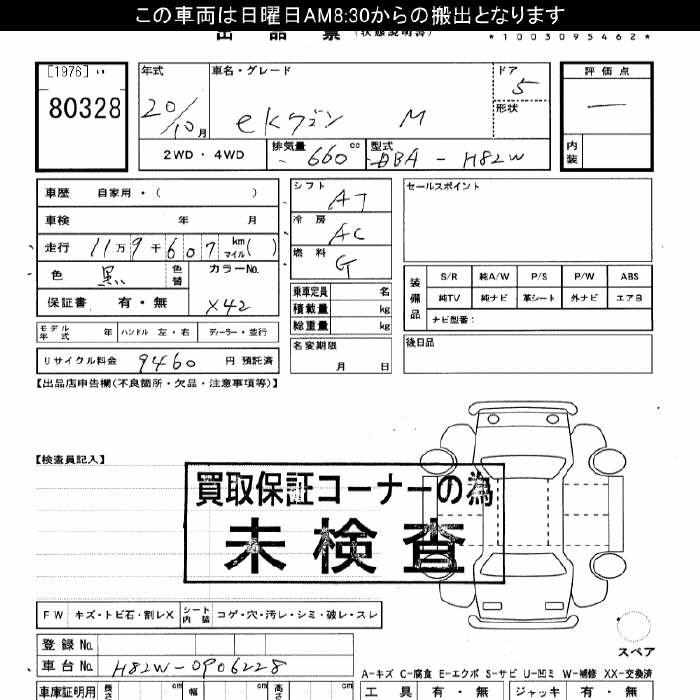 この車両は日曜日AM8:30からの搬出となります
出品票 (状態説明書)
*1003095462*
[1976]
80328
年式
20/10月
車名・グレード
ekワゴン M
ドア
5
形状
評価点
—
内装
2WD・4WD
排気量 660 cc
型式 DBA-H82W
車歴 自家用・( )
車検 年 月
走行 11万9千607 km マイル( )
色 黒 色替
カラーNo.
X42
保証書 有・無
モデル年式 年 ハンドル 左・右 ディーラー・並行
リサイクル料金 9460 円 預託済
シフト AT
冷房 AC
燃料 G
乗車定員 名
積載量 kg
総重量 kg
名変期限
月 日
セールスポイント
装備品
S/R 純A/W P/S P/W ABS
純TV 純ナビ 革シート 外ナビ エアB
ナビ型番:
後日品
【出品店申告欄(不良箇所・欠品・注意事項等)】
【検査員記入】
買取保証コーナーの為
未検査
FW キズ・トビ石・割レX シート内装 コゲ・穴・汚レ・シミ・破レ・スレ
登録No.
車台No. H82W-0906228
スペア
A-キズ C-腐食 E-エクボ S-サビ U-凹ミ W-補修 XX-交換済
車庫証明用 長さ cm 幅 cm 高さ cm
工具 有・無 ジャッキ 有・無